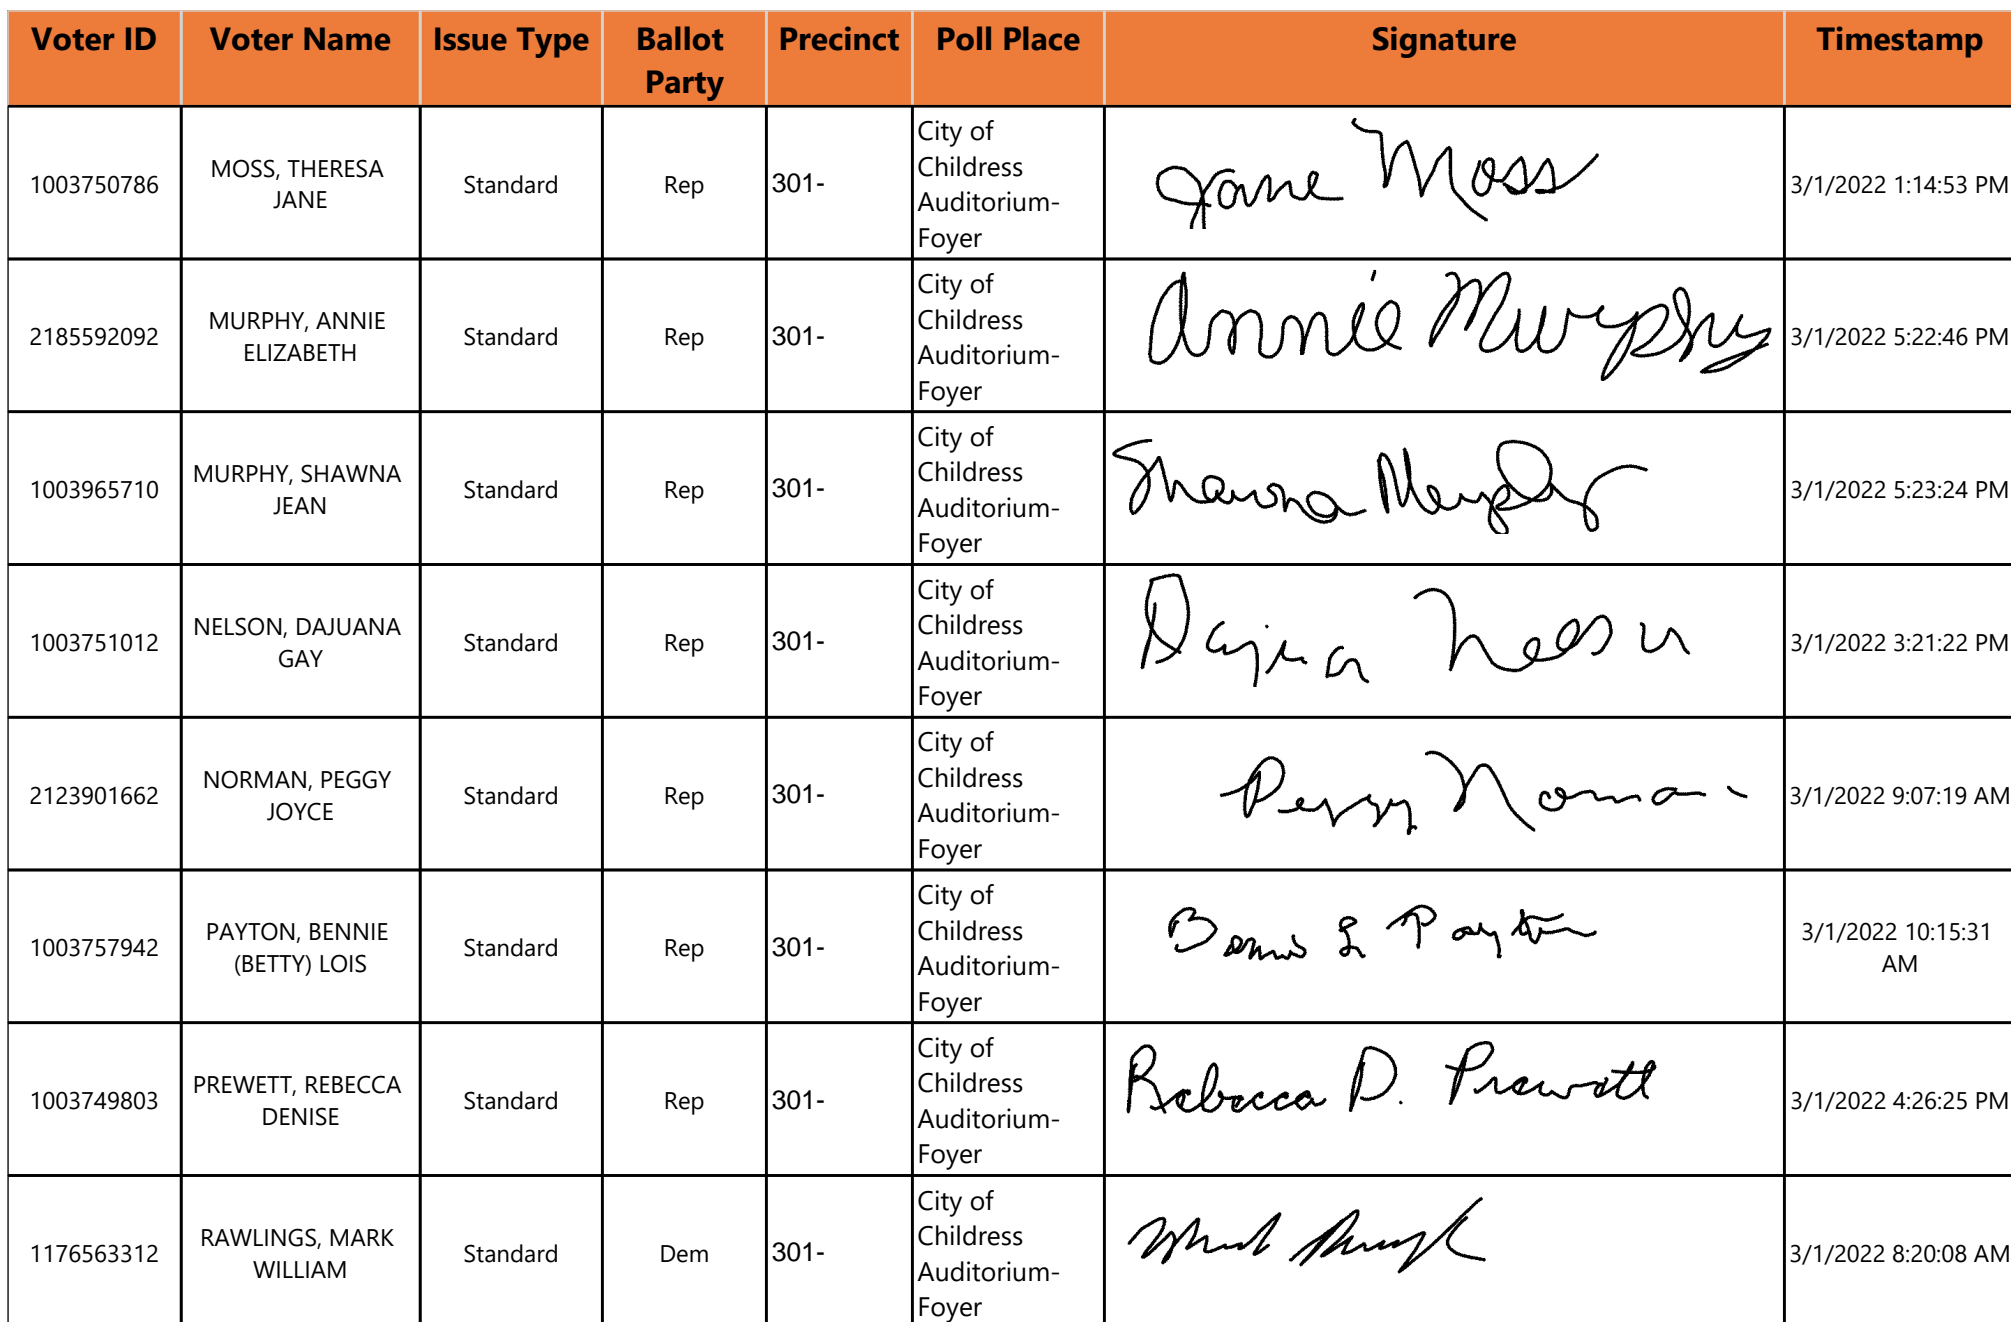 Voter ID Voter Name Issue Type Ballot Party Precinct Poll Place Signature Timestamp
1003750786 MOSS, THERESA JANE Standard Rep 301- City of Childress Auditorium-Foyer Jane Moss 3/1/2022 1:14:53 PM
2185592092 MURPHY, ANNIE ELIZABETH Standard Rep 301- City of Childress Auditorium-Foyer Annie Murphy 3/1/2022 5:22:46 PM
1003965710 MURPHY, SHAWNA JEAN Standard Rep 301- City of Childress Auditorium-Foyer Shawna Murphy 3/1/2022 5:23:24 PM
1003751012 NELSON, DAJUANA GAY Standard Rep 301- City of Childress Auditorium-Foyer Nelson 3/1/2022 3:21:22 PM
2123901662 NORMAN, PEGGY JOYCE Standard Rep 301- City of Childress Auditorium-Foyer Peggy Norman 3/1/2022 9:07:19 AM
1003757942 PAYTON, BENNIE (BETTY) LOIS Standard Rep 301- City of Childress Auditorium-Foyer Bennie L Payton 3/1/2022 10:15:31 AM
1003749803 PREWETT, REBECCA DENISE Standard Rep 301- City of Childress Auditorium-Foyer Rebecca D. Prewett 3/1/2022 4:26:25 PM
1176563312 RAWLINGS, MARK WILLIAM Standard Dem 301- City of Childress Auditorium-Foyer 3/1/2022 8:20:08 AM